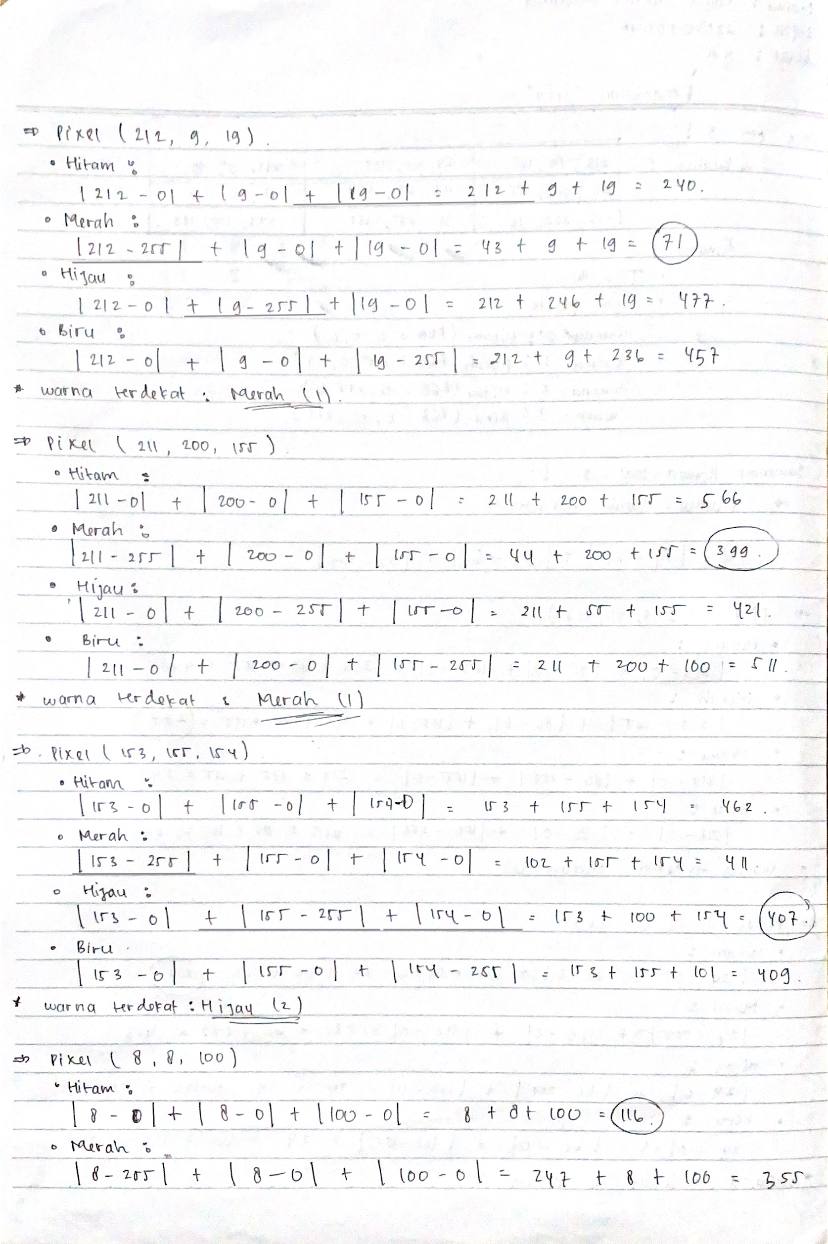 ⇒ Pixel ( 212, 9, 19 ).
• Hitam :
| 212 - 0 | + | 9 - 0 | + | 19 - 0 | = 212 + 9 + 19 = 240.
• Merah :
| 212 - 255 | + | 9 - 0 | + | 19 - 0 | = 43 + 9 + 19 = 71
• Hijau :
| 212 - 0 | + | 9 - 255 | + | 19 - 0 | = 212 + 246 + 19 = 477.
• Biru :
| 212 - 0 | + | 9 - 0 | + | 19 - 255 | = 212 + 9 + 236 = 457
* warna terdekat : Merah (1).
⇒ Pixel ( 211, 200, 155 )
• Hitam :
| 211 - 0 | + | 200 - 0 | + | 155 - 0 | = 211 + 200 + 155 = 566
• Merah :
| 211 - 255 | + | 200 - 0 | + | 155 - 0 | = 44 + 200 + 155 = 399.
• Hijau :
| 211 - 0 | + | 200 - 255 | + | 155 - 0 | = 211 + 55 + 155 = 421.
• Biru :
| 211 - 0 | + | 200 - 0 | + | 155 - 255 | = 211 + 200 + 100 = 511.
* warna terdekat : Merah (1)
⇒ Pixel ( 153, 155, 154 )
• Hitam :
| 153 - 0 | + | 155 - 0 | + | 154 - 0 | = 153 + 155 + 154 = 462.
• Merah :
| 153 - 255 | + | 155 - 0 | + | 154 - 0 | = 102 + 155 + 154 = 411.
• Hijau :
| 153 - 0 | + | 155 - 255 | + | 154 - 0 | = 153 + 100 + 154 = 407.
• Biru
| 153 - 0 | + | 155 - 0 | + | 154 - 255 | = 153 + 155 + 101 = 409.
* warna terdekat : Hijau (2)
⇒ Pixel ( 8, 8, 100 )
• Hitam :
| 8 - 0 | + | 8 - 0 | + | 100 - 0 | = 8 + 8 + 100 = 116.
• Merah :
| 8 - 255 | + | 8 - 0 | + | 100 - 0 | = 247 + 8 + 100 = 355